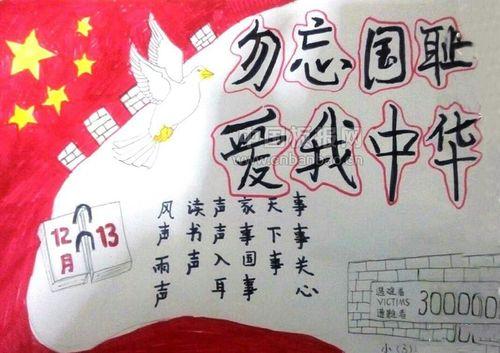 勿忘国耻
爱我中华
中国板报网
www.cnbanbao.cn
风声雨声
读书声
声声入耳
家事国事
天下事
事事关心
12月
13
遇难者
VICTIMS
遭難者
300000